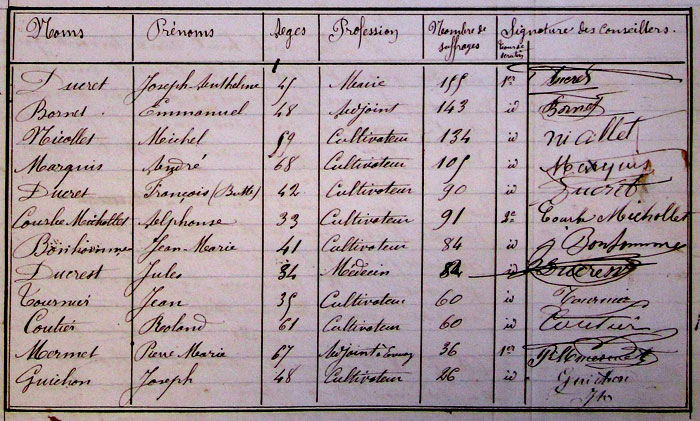 Noms Prénoms Ages Profession Nombre de suffrages Tour de scrutin Signature des Conseillers.
Ducret Joseph-Anthelme 45 Maire 155 1er Ducret
Bornet Emmanuel 48 Adjoint 143 id Bornet
Nicollet Michel 59 Cultivateur 134 id niollet
Marquis André 68 Cultivateur 105 id Marquis
Ducret François 42 Cultivateur 90 id Ducret
Courbe Michollet Alphonse 33 Cultivateur 91 2e Courbe Michollet
Bonhomme Jean-Marie 41 Cultivateur 84 id J Bonhomme
Ducrest Jules 34 Médecin 82 id Ducrest
Tournier Jean 35 Cultivateur 60 id Tournier
Coutier Roland 61 Cultivateur 60 id Coutier
Mermet Pierre Marie 67 Adjoint 36 1er PMMermet
Guichon Joseph 48 Cultivateur 26 id Guichon
Jh